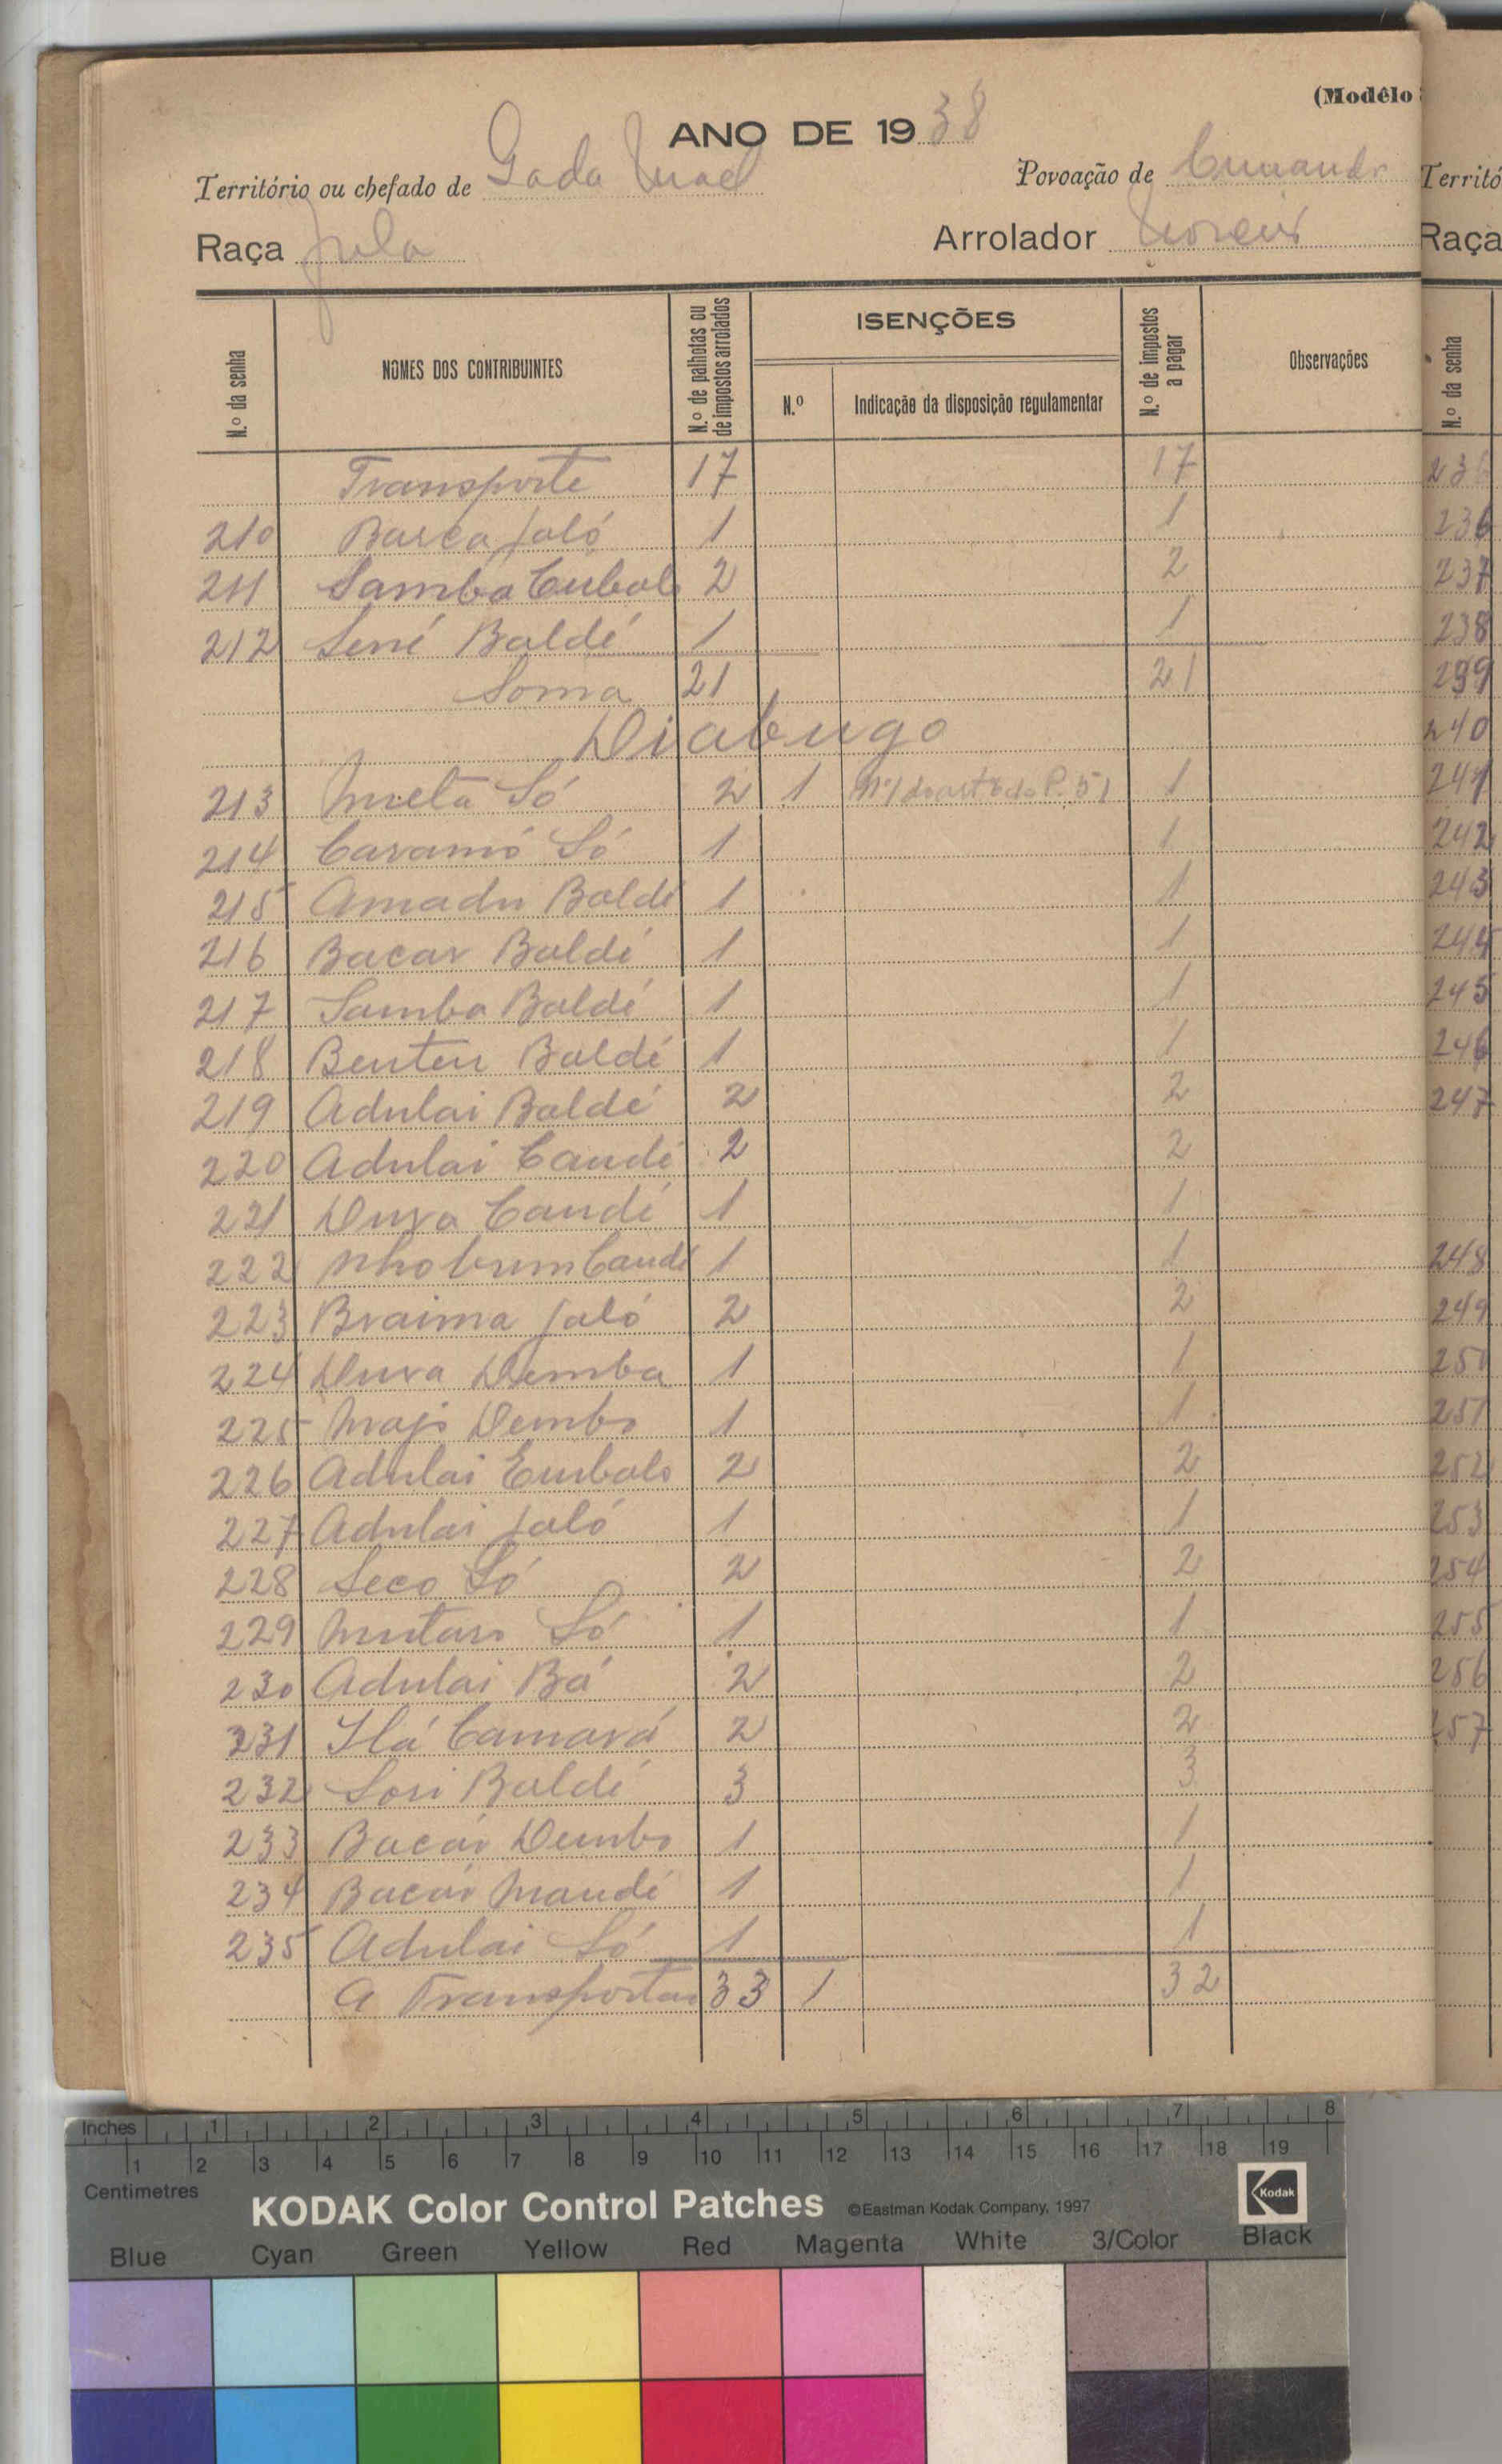 (Modêlo
ANO DE 1938
Território ou chefado de Gada Mael
Povoação de
Raça Fula
Arrolador Moreis
N.º da senha
NOMES DOS CONTRIBUINTES
N.º de palhotas ou de impostos arrolados
ISENÇÕES
N.º
Indicação da disposição regulamentar
N.º de impostos a pagar
Observações
Transporte 17 17
210 Jaló 1 1
211 Samba 2 2
212 Sené Baldé 1 1
Soma 21 21
Diabugo
213 Meta Só 2 1 1
214 Caramó Só 1 1
215 Amadu Baldé 1 1
216 Bacar Baldé 1 1
217 Samba Baldé 1 1
218 Benten Baldé 1 1
219 Adulai Baldé 2 2
220 Adulai Candé 2 2
221 Dura Candé 1 1
222 Candé 1 1
223 Braima Jaló 2 2
224 Dura Demba 1 1
225 Majo Dembo 1 1
226 Adulai Embalo 2 2
227 Adulai Jaló 1 1
228 Seco Só 2 2
229 Mutaro Só 1 1
230 Adulai Bá 2 2
231 Ilá Camará 2 2
232 Sori Baldé 3 3
233 Bacár Dembo 1 1
234 Bacár Mandé 1 1
235 Adulai Só 1 1
A Transportar 33 1 32
Territó
Raça
N.º da senha
236
237
238
239
240
241
242
243
244
245
246
247
248
249
250
251
252
253
254
255
256
257
Inches 1 2 3 4 5 6 7 8
1 2 3 4 5 6 7 8 9 10 11 12 13 14 15 16 17 18 19
Centimetres
KODAK Color Control Patches ©Eastman Kodak Company, 1997 Kodak
Blue Cyan Green Yellow Red Magenta White 3/Color Black